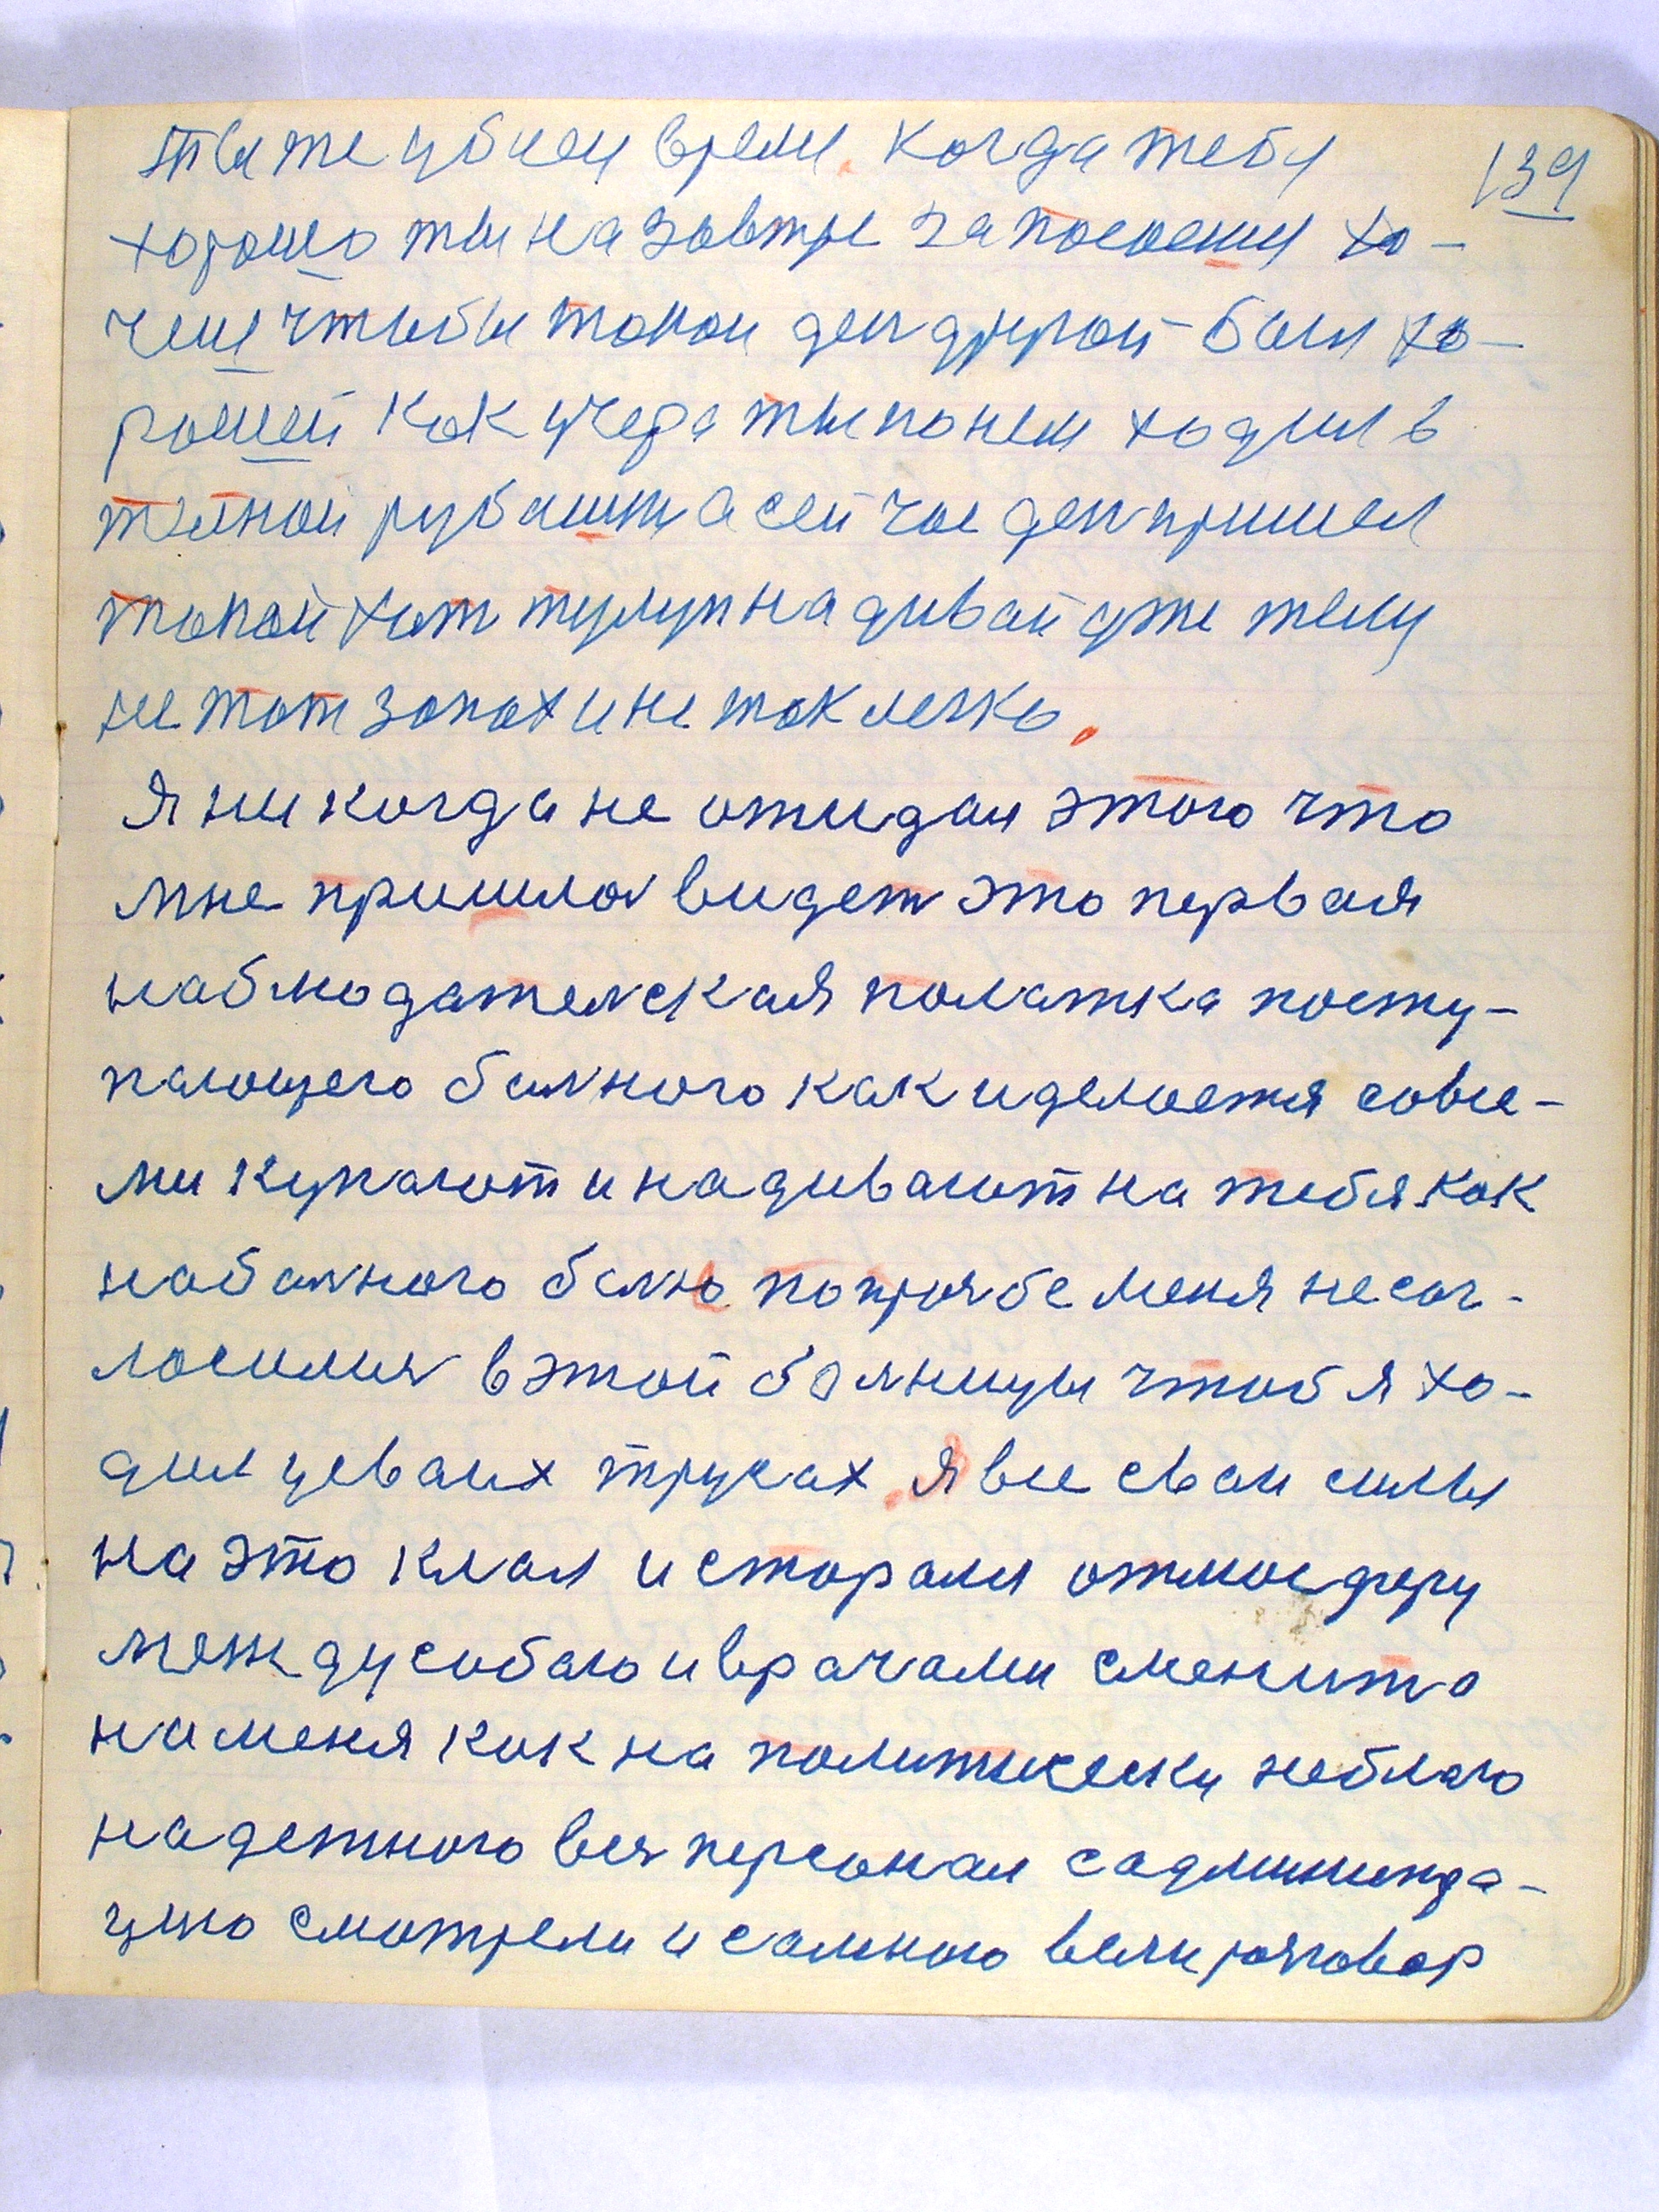 139
ты же убиеш время. Когда тебу
хорошо ты на завтре запосоеши хо-
чеш чтобы токои ден другой был хо-
роший как учера ты по нем ходил в
т рубашки а сейчас ден пришел
токой хот тулуп надивай уже телу
не тот запах и не так легко.
Я никогда не ожидал этого что
мне пришлос видет это первая
наблюдателская полатка посту-
пающего болного как и делоется совсе-
ми купают и надивают на тебя как
на болного белю попрозбе меня не сог-
лосилис в этой болницы чтоб я хо-
дил усваих трусах. Я все сваи силы
на это клал и старался отмосферу
между собаю и врачами сменит а
на меня как на политически неблаго
надетного вес персонал садминистра-
цию смотрели и самною вели розговор